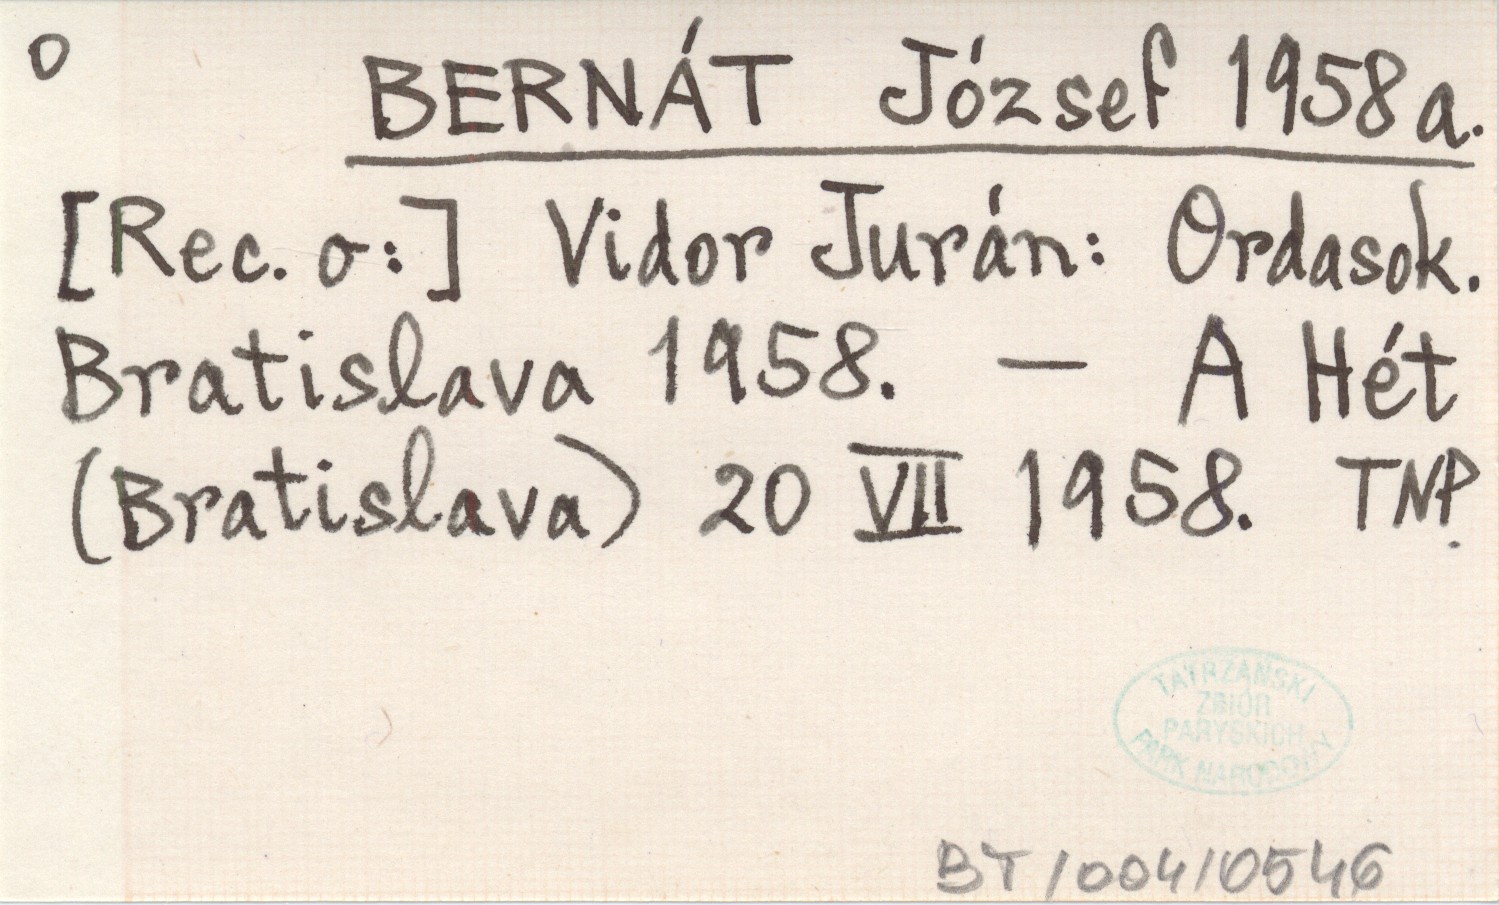 o BERNÁT József 1958a.
[Rec. o:] Vidor Jurán: Ordasok.
Bratislava 1958. — A Hét
(Bratislava) 20 VII 1958. TNP.
TATRZAŃSKI
ZBIÓR
PARYSKICH
PARK NARODOWY
BT/004/0546